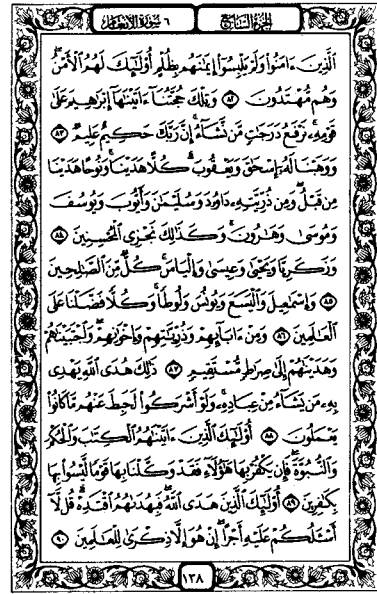 الجزء السابع ٦ سورة الأنعام
الَّذِينَ ءَامَنُوا۟ وَلَمْ يَلْبِسُوٓا۟ إِيمَٰنَهُم بِظُلْمٍ أُو۟لَٰٓئِكَ لَهُمُ ٱلْأَمْنُ
وَهُم مُّهْتَدُونَ ٨٢ وَتِلْكَ حُجَّتُنَآ ءَاتَيْنَٰهَآ إِبْرَٰهِيمَ عَلَىٰ
قَوْمِهِۦ نَرْفَعُ دَرَجَٰتٍ مَّن نَّشَآءُ إِنَّ رَبَّكَ حَكِيمٌ عَلِيمٌ ٨٣
وَوَهَبْنَا لَهُۥٓ إِسْحَٰقَ وَيَعْقُوبَ كُلًّا هَدَيْنَا وَنُوحًا هَدَيْنَا
مِن قَبْلُ وَمِن ذُرِّيَّتِهِۦ دَاوُۥدَ وَسُلَيْمَٰنَ وَأَيُّوبَ وَيُوسُفَ
وَمُوسَىٰ وَهَٰرُونَ وَكَذَٰلِكَ نَجْزِى ٱلْمُحْسِنِينَ ٨٤
وَزَكَرِيَّا وَيَحْيَىٰ وَعِيسَىٰ وَإِلْيَاسَ كُلٌّ مِّنَ ٱلصَّٰلِحِينَ
٨٥ وَإِسْمَٰعِيلَ وَٱلْيَسَعَ وَيُونُسَ وَلُوطًا وَكُلًّا فَضَّلْنَا عَلَى
ٱلْعَٰلَمِينَ ٨٦ وَمِنْ ءَابَآئِهِمْ وَذُرِّيَّٰتِهِمْ وَإِخْوَٰنِهِمْ وَٱجْتَبَيْنَٰهُمْ
وَهَدَيْنَٰهُمْ إِلَىٰ صِرَٰطٍ مُّسْتَقِيمٍ ٨٧ ذَٰلِكَ هُدَى ٱللَّهِ يَهْدِى
بِهِۦ مَن يَشَآءُ مِنْ عِبَادِهِۦ وَلَوْ أَشْرَكُوا۟ لَحَبِطَ عَنْهُم مَّا كَانُوا۟
يَعْمَلُونَ ٨٨ أُو۟لَٰٓئِكَ ٱلَّذِينَ ءَاتَيْنَٰهُمُ ٱلْكِتَٰبَ وَٱلْحُكْمَ
وَٱلنُّبُوَّةَ فَإِن يَكْفُرْ بِهَا هَٰٓؤُلَآءِ فَقَدْ وَكَّلْنَا بِهَا قَوْمًا لَّيْسُوا۟ بِهَا
بِكَٰفِرِينَ ٨٩ أُو۟لَٰٓئِكَ ٱلَّذِينَ هَدَى ٱللَّهُ فَبِهُدَىٰهُمُ ٱقْتَدِهْ قُل لَّآ
أَسْـَٔلُكُمْ عَلَيْهِ أَجْرًا إِنْ هُوَ إِلَّا ذِكْرَىٰ لِلْعَٰلَمِينَ ٩٠
١٣٨